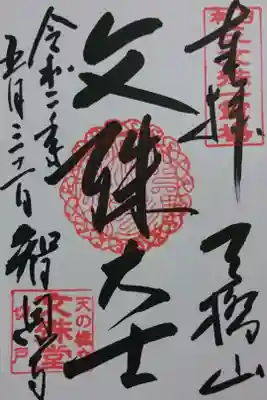 奉拝 天橋山
文殊大士
智恩寺
令和二年
五月三十一日
天の橋立
文殊堂